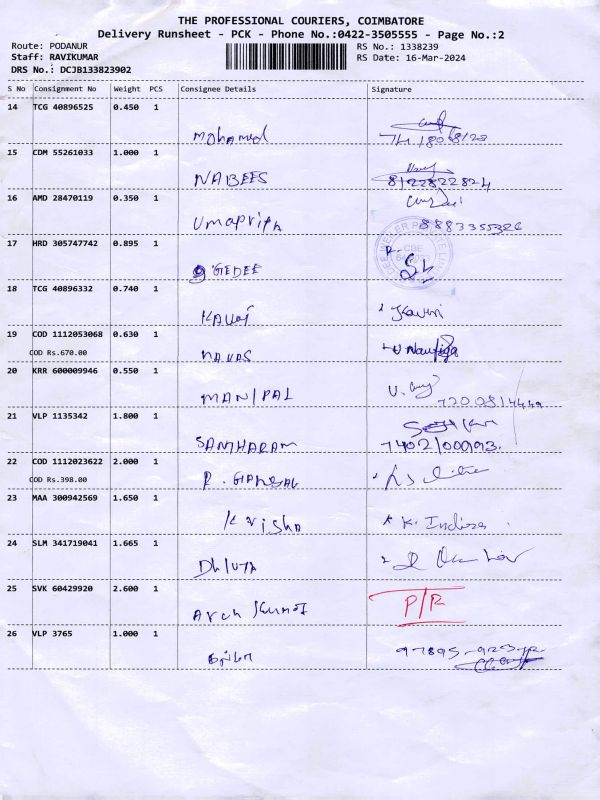 THE PROFESSIONAL COURIERS, COIMBATORE
Delivery Runsheet - PCK - Phone No.:0422-3505555 - Page No.:2
Route: PODANUR RS No.: 1338239
Staff: RAVIKUMAR RS Date: 16-Mar-2024
DRS No.: DCJB133823902
S No Consignment No Weight PCS Consignee Details Signature
14 TCG 40896525 0.450 1
Mohamed
15 CDM 55261033 1.000 1
NABEES 8122822824
16 AMD 28470119 0.350 1
Umapriya 8883355326
17 HRD 305747742 0.895 1
GEDEE
18 TCG 40896332 0.740 1
KAVAI Kavini
19 COD 1112053068 0.630 1
COD Rs.670.00 NAVAS
20 KRR 600009946 0.550 1
MANIPAL
21 VLP 1135342 1.800 1
SANTHARAM 7402100993.
22 COD 1112023622 2.000 1
COD Rs.398.00
23 MAA 300942569 1.650 1
K. Indira
24 SLM 341719041 1.665 1
25 SVK 60429920 2.600 1
Arun Kumar P/R
26 VLP 3765 1.000 1